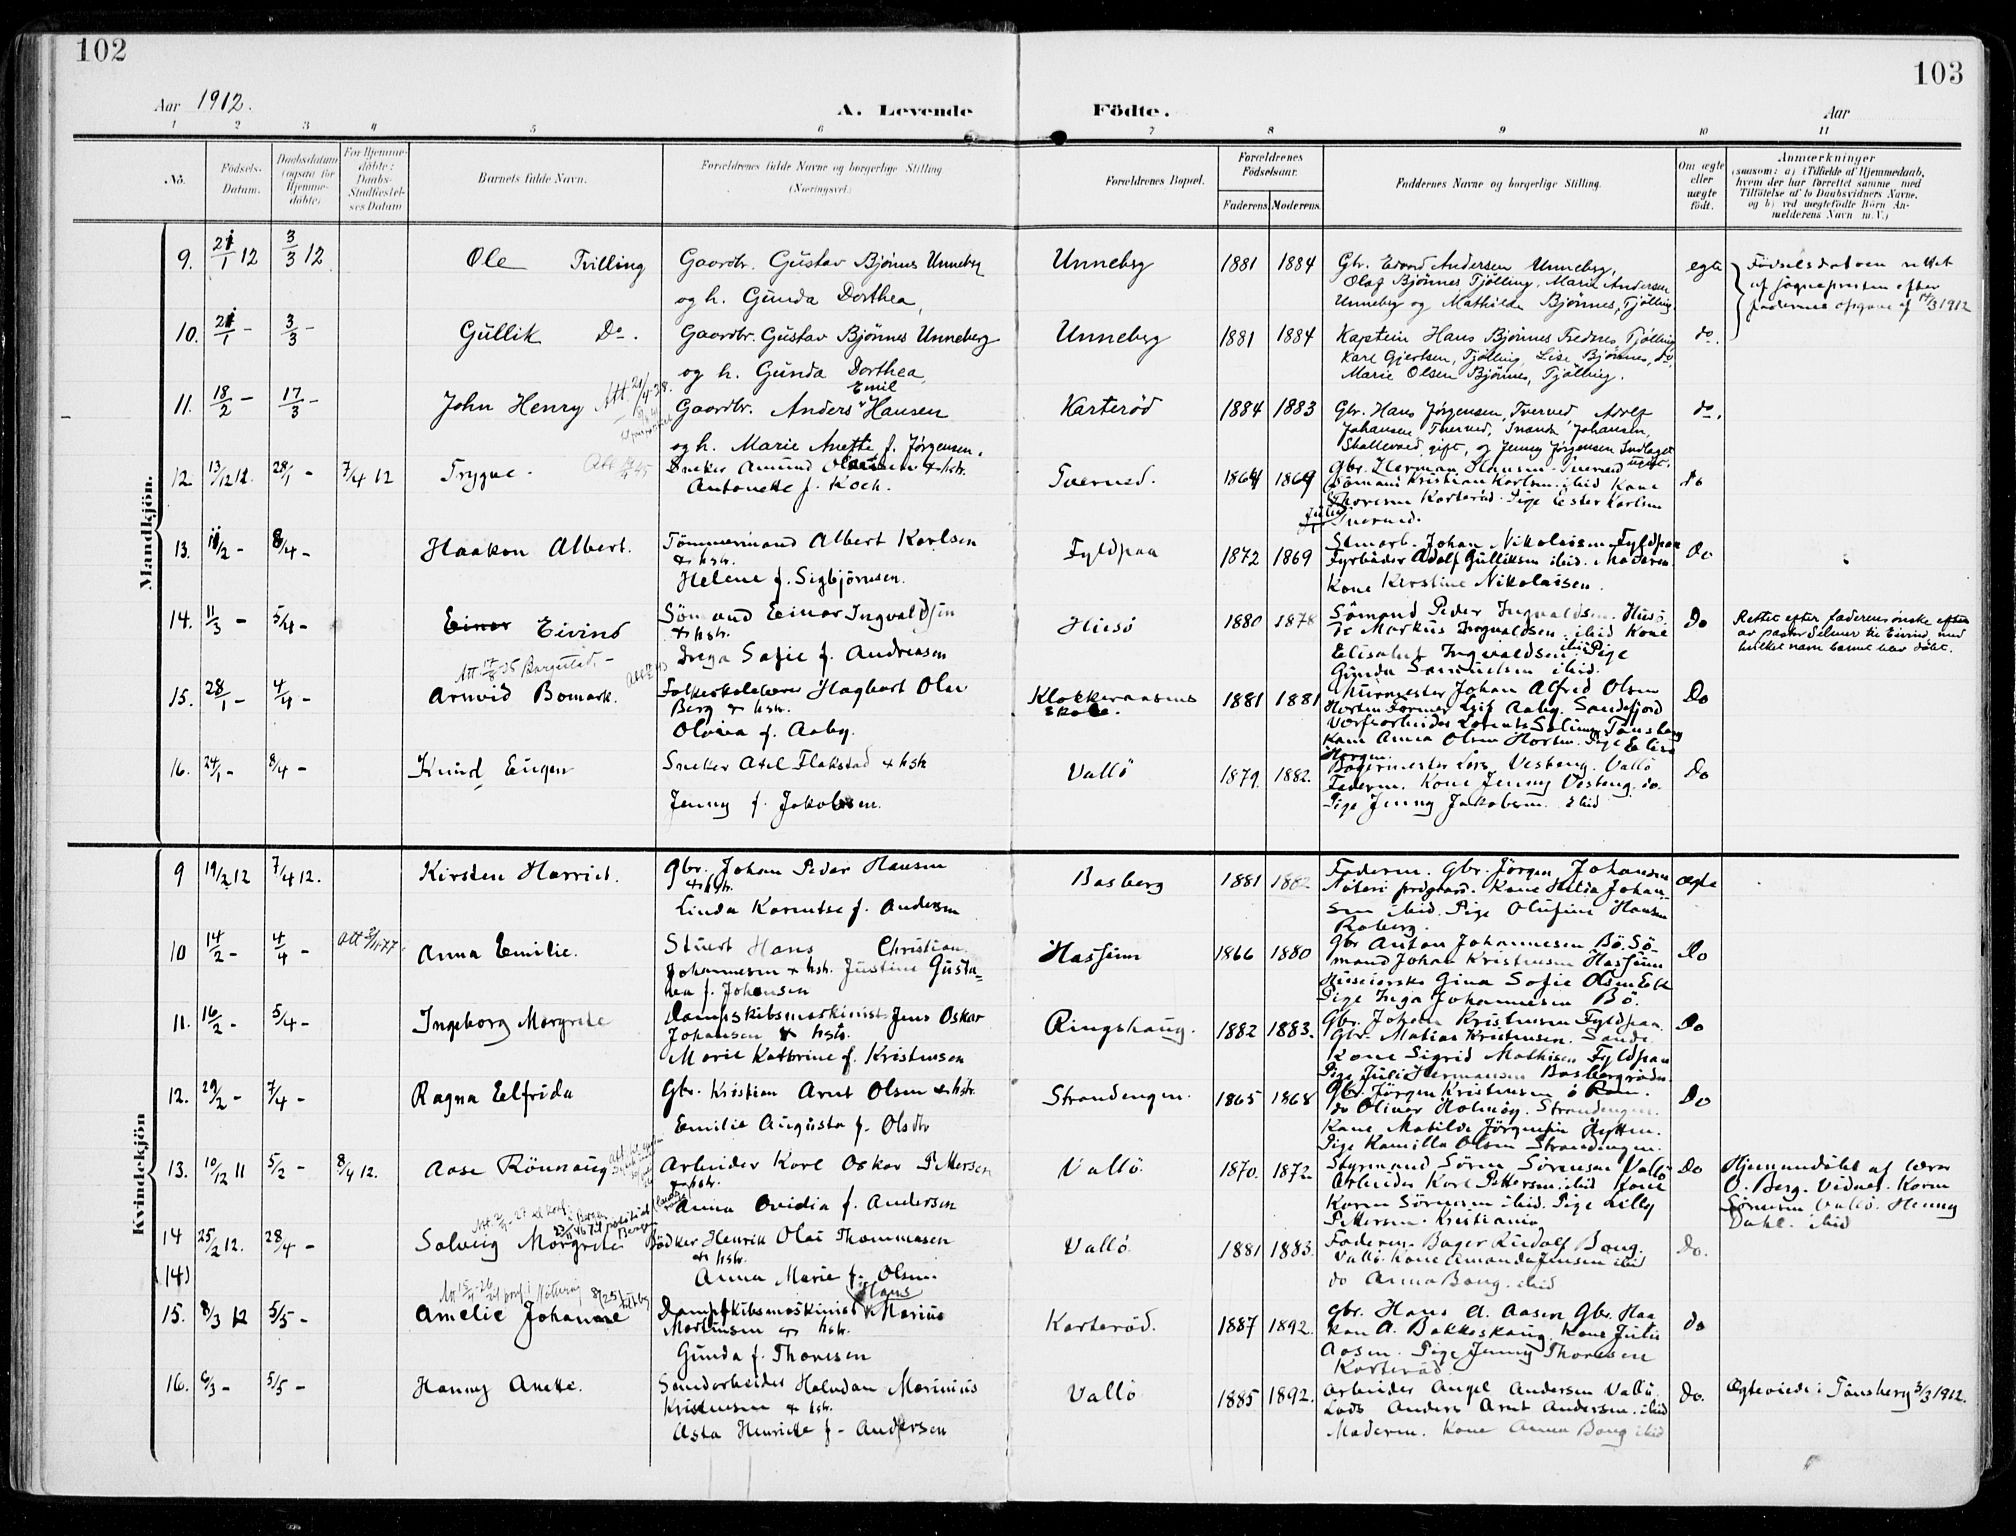 102
103
Aar 1912.
A. Levende
Födte.
Aar
1 2 3 4 5 6 7 8 9 10 11
No.
Födsels-
Datum.
Daabsdatum
(ogsaa for
Hjemme-
döbte)
For Hjemme-
döbte:
Daabs-
Stadfæstel-
ses Datum
Barnets fulde Navn.
Forældrenes fulde Navne og borgerlige Stilling
(Næringsvei.)
Forældrenes Bopæl.
Forældrenes
Födselsaar.
Faderens.
Moderens.
Faddernes Navne og borgerlige Stilling.
Om ægte
eller
uægte
födt.
Anmærkninger
(saasom: a) i Tilfælde af Hjemmedaab,
hvem der har forrettet samme med
Tilföielse af to Daabsvidners Navne,
og b) ved uægtefödte Börn An-
melderens Navn m. V.)
Mandkjön.
9. 21/1 12 3/3 12 Ole Tvilling
Gaardbr. Gustav Bjönnes Unneberg
og h. Gunda Dorthea,
Unneberg 1881 1884
Gbr. Edvard Andersen Unneberg,
Olaf Bjönnes Tjölling, Marie Andersen
Unneberg og Mathilde Bjönnes, Tjölling.
egte
Födselsdatoen rettet
af sognepresten efter
faderens opgave af 14/3 1912
10. 21/1 - 3/3 - Gullik Do.
Gaardbr. Gustav Bjönnes Unneberg
og h. Gunda Dorthea,
Unneberg 1881 1884
Kaptein Hans Bjönnes Tjölling
Karl Gjertsen, Tjölling, Lise Bjönnes, do,
Marie Olsen Bjönnes, Tjölling.
do.
11. 18/2 - 17/3 - John Henry Att. 21/4-38.
Gaardbr. Anders Emil Hansen
og h. Marie Anette f. Jörgensen.
Karteröd 1884 1883
Gbr. Hans Jörgensen, Tverved, Adolf
Johansen Tverved, Johansen,
Skallevold, gift, og Jenny Jörgensen
ugift.
do.
12. 13/12 12. 28/1 - 7/4 12 Trygve.
Sneker Amund Olausen & hstr.
Antonette f. Koch.
Tverved. 1864 1869
Gbr. Herman Hansen Tverved
Sömand Kristian Karlsen ibid Kone
Thoresen Karteröd. Pige Ester Karlsen
Tverved.
do
13. 11/2 - 8/4 - Haakon Albert.
Tömmermand Albert Karlsen
& hstr.
Helene f. Sigbjörnsen.
Fyldpaa 1872 1869
Johan Nikolaisen Fyldpaa
Fyrböder Adolf Gulliksen ibid. Moderen
Kone Kirstine Nikolaisen.
Do
14. 11/3 - 5/4 - Einar Eivind
Sömand Einar Ingvaldsen
& hstr.
Sofie f. Andreasen
Husö 1880 1878
Sömand Peder Ingvaldsen. Husö.
Do Markus Ingvaldsen ibid Kone
Elisabet Ingvaldsen ibid Pige
Gunda Samuelsen ibid.
Do
Rettet efter faderens önske efter
av pastor Selmer til Eivind, med
hvilket navn barnet blev döbt.
15. 28/1 - 4/4 - Arnvid Bomark.
Folkeskolelærer Hagbart Olai
Berg & hstr.
Olivia f. Aaby.
Klokkeraasens
skole. 1881 1881
Murmester Johan Alfred Olsen
Horten Former Leif Aaby. Sandefjord
Verftsarbeider Lorents Solum Tönsberg
Kone Anna Olsen Horten. Pige Elise
Horgen.
Do
16. 24/1 - 8/4 - Knud Eugen
Sneker Axel Flakstad & hstr
Jenny f. Jakobsen.
Vallö 1879. 1882.
Bagermester Vesteng. Vallö
Faderen. Kone Jenny Vesteng. do.
Pige Jenny Jakobsen. ibid
Do
Kvindekjön
9 19/2 12 7/4 12. Kirsten Harriet.
Gbr. Johan Peder Hansen
& hstr.
Linda Karentse f. Andersen
Basberg 1881 1882
Faderen. Gbr. Jörgen Johansen
Nöteri prestgaard. Kone Hilda Johan
sen ibid. Pige Olufine Hansen
Roberg.
Ægte
10 14/2 - 4/4 - Anna Emilie.
Stuert Hans Christian
Johannesen & hstr. Justine Gusta-
va f. Johansen
Hassum 1866 1880
Gbr Anton Johannesen Bö. Sö
mand Johan Kristensen Hassum
Gina Sofie Olsen Eik
Pige Inga Johannesen Bö.
Do
11. 16/2 - 5/4 - Ingeborg Margrete
Dampskibsmaskinist Jens Oskar
Johansen & hstr.
Marie Kathrine f. Kristensen
Ringshaug. 1882 1883.
Gbr. Johan Kristensen Fyldpaa.
Gbr. Matias Kristensen. Sande.
Kone Sigrid Mathisen Fyldpaa
Pige Juli Hermansen Basbergröd.
Do
12. 29/2 - 7/4 - Ragna Elfrida
Gbr. Kristian Arnt Olsen & hstr.
Emilie Augusta f. Olsdtr
Strandengen. 1865 1868
Gbr. Jörgen Kristensen ö
do Oliver Holmöy. Strandengen.
Kone Matilde Jörgensen Hytten.
Pige Kamilla Olsen Strandengen.
Do
13. 10/12 11 5/2 - 8/4 12. Aase Rönnaug
Arbeider Karl Oskar Pettersen
& hstr.
Anna Ovidia f. Andersen
Vallö. 1870. 1872.
Styrmand Sören Sörensen Vallö
Arbeider Karl Pettersen. ibid Kone
Karen Sörensen ibid. Pige Lilly
Pettersen. Kristiania
Do
Hjemmedöbt af lærer
O. Berg. Vidner. Karen
Sörensen Vallö. Henny
Dahl. ibid
14 25/2 12. 28/4 - Solveig Margrete
(14)
Bödker Henrik Olai Thommasen
& hstr.
Anna Marie f. Olsen.
Vallö. 1881 1883.
Faderen. Bager Rudolf Bong.
Vallö. Kone Amanda Jensen ibid
do Anna Bong. ibid
Do.
15. 8/3 12 5/5 - Amelie Johanne
Dampskibsmaskinist Hans Marius
Martinsen & hstr.
Gunda f. Thoresen
Karteröd. 1887 1892.
Gbr. Hans A. Aasen Gbr. Haa
kon A. Bakkeskaug. Kone Julie
Aasen. Pige Jenny Thoresen
Karteröd
do
16. 6/3 - 5/5 - Hanny Anette.
Sandarbeider Halvdan Marinius
Kristensen & hstr.
Asta Henriette f. Andersen
Vallö 1885 1892.
Arbeider Angel Andersen Vallö.
Lods Anders Arnt Andersen. ibid
Moderen. Kone Anna Bong ibid
Do.
Ægteviede i Tönsberg 3/3 1912.